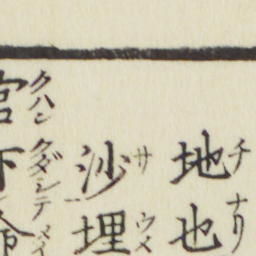 地也
チナリ
沙埋
サウメ
官下命
クハンクダシテメイ